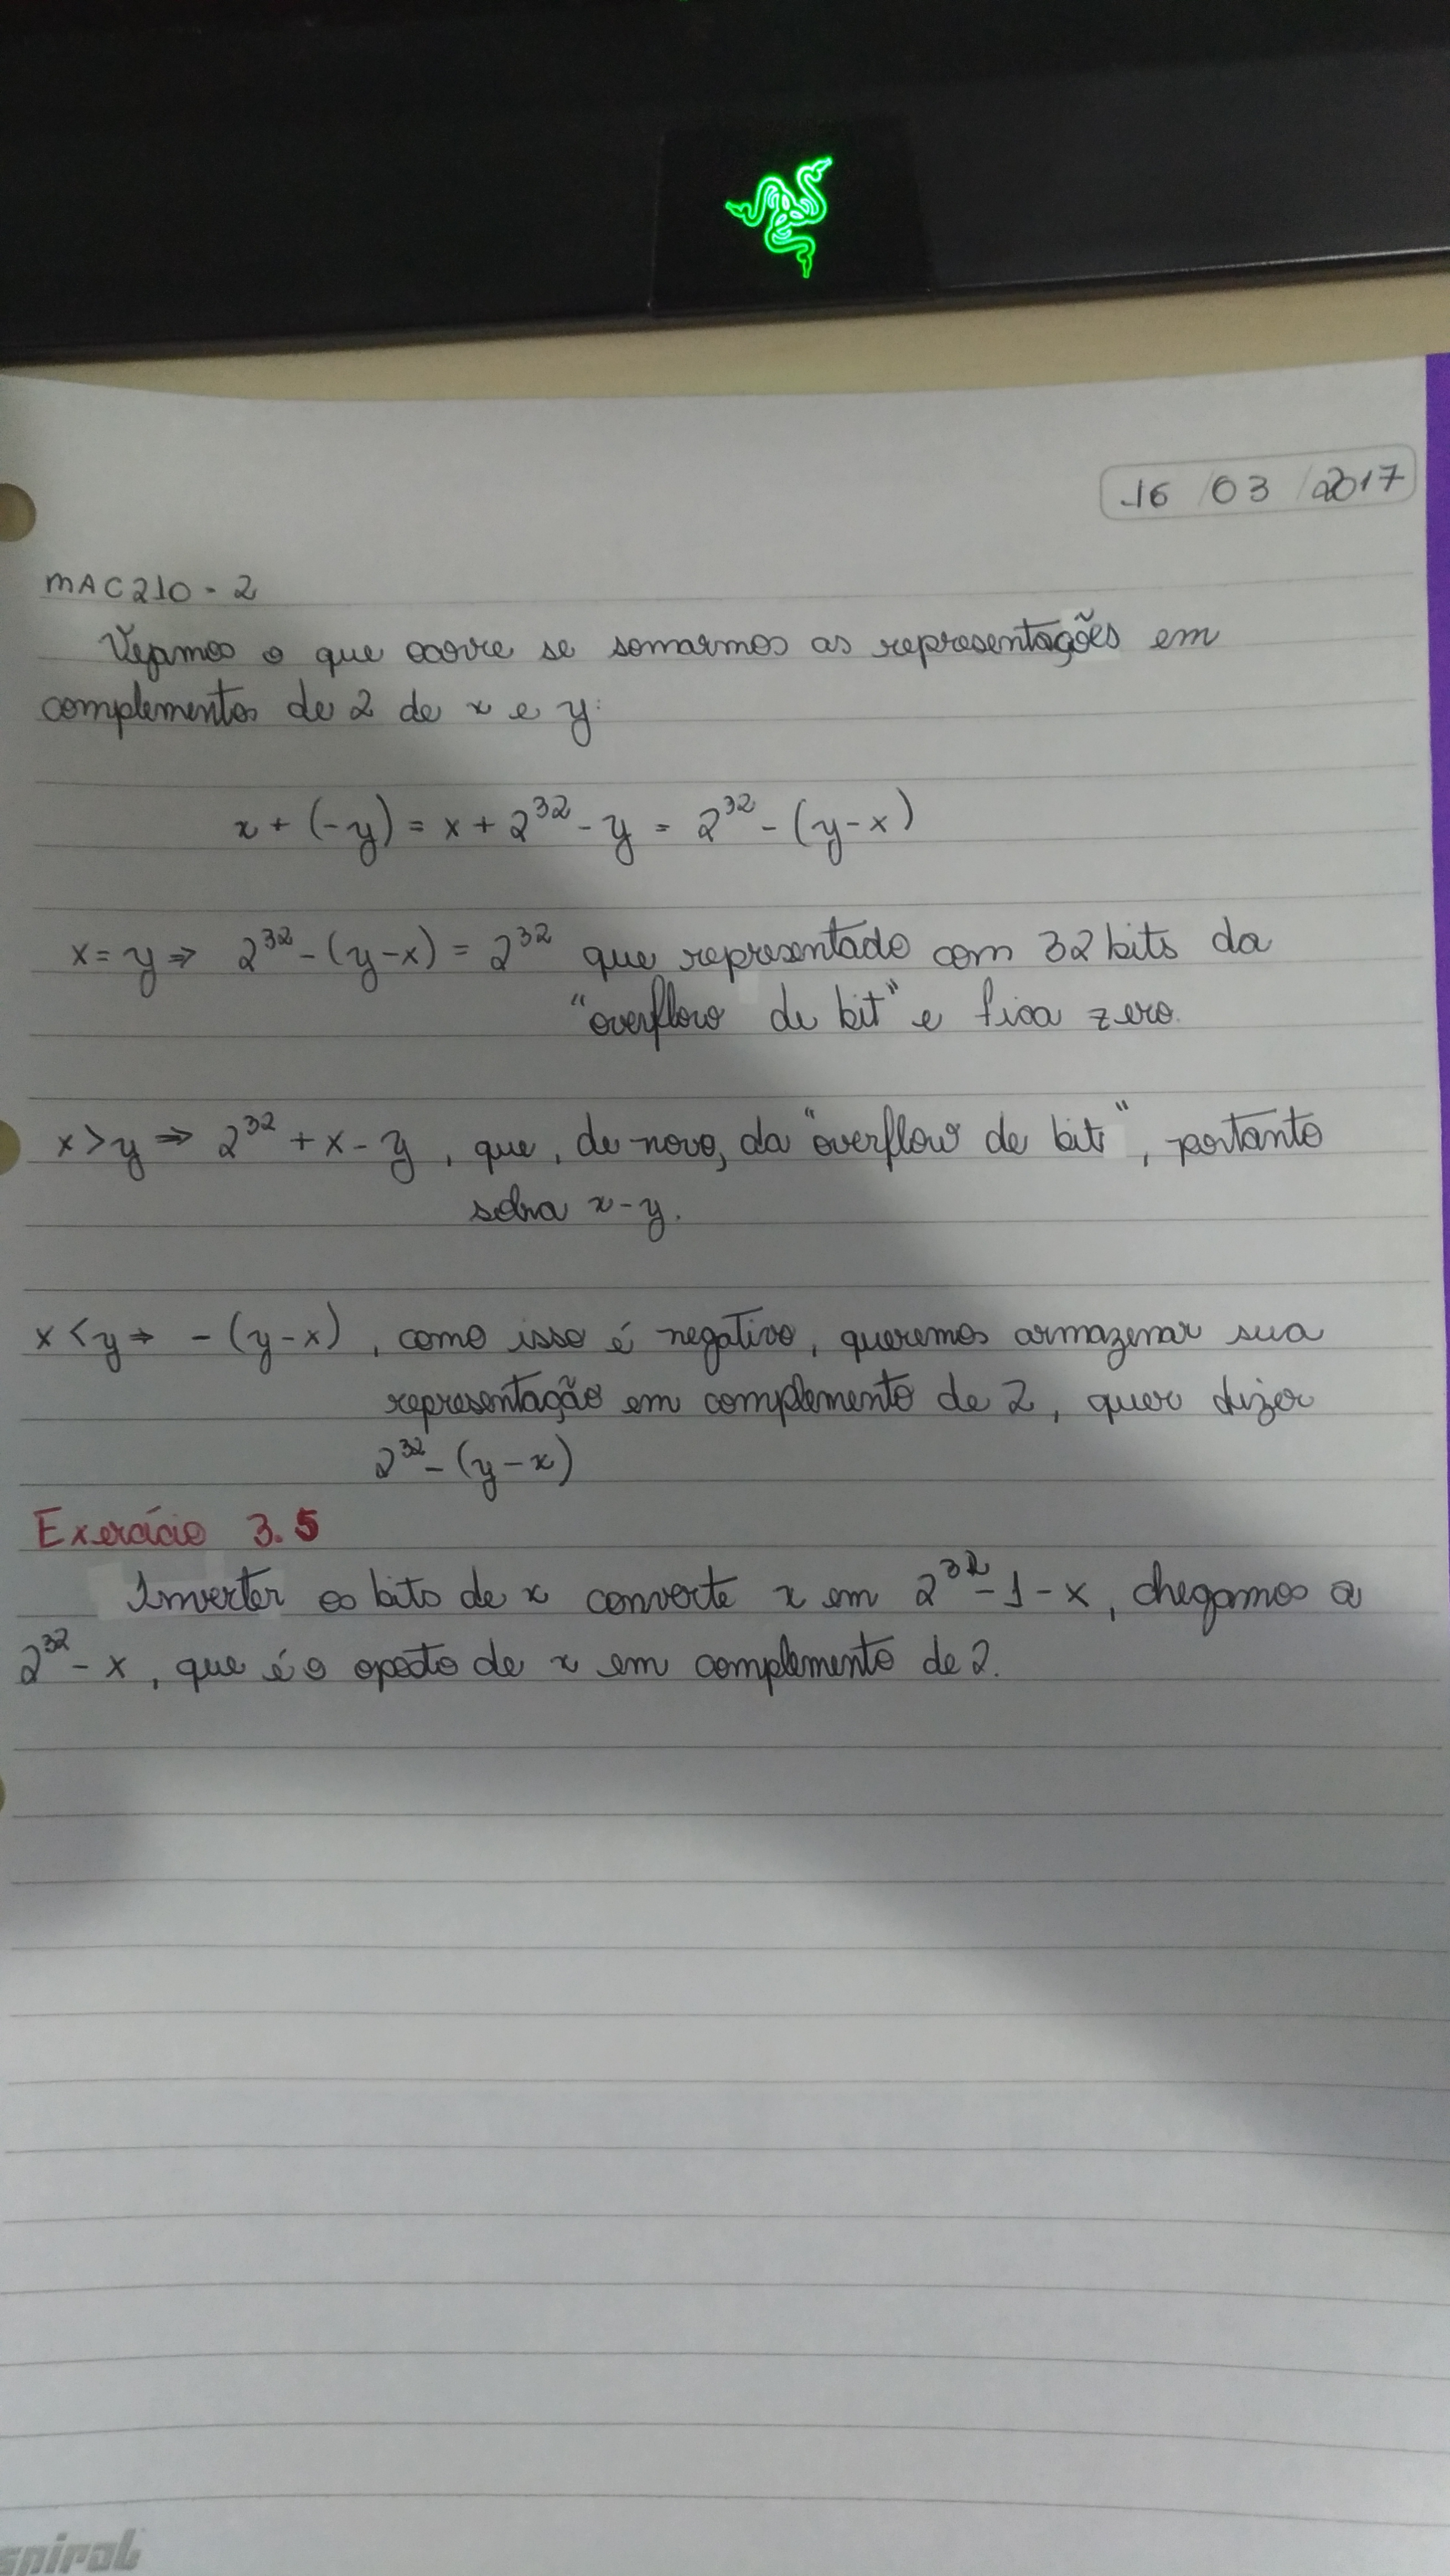 16/03/2017
MAC210 - 2
Vejamos o que ocorre se somarmos as representações em
complementos de 2 de x e y:
x + (-y) = x + 2^32 - y = 2^32 - (y - x)
x = y ⇒ 2^32 - (y - x) = 2^32 que representado com 32 bits da
"overflow de bit" e fica zero.
x > y ⇒ 2^32 + x - y, que, de novo, da "overflow de bit", portanto
sobra x - y.
x < y ⇒ - (y - x), como isso é negativo, queremos armazenar sua
representação em complemento de 2, quer dizer
2^32 - (y - x)
Exercício 3.5
Inverter os bits de x converte x em 2^32 - 1 - x, chegamos a
2^32 - x, que é o oposto de x em complemento de 2.
spiral